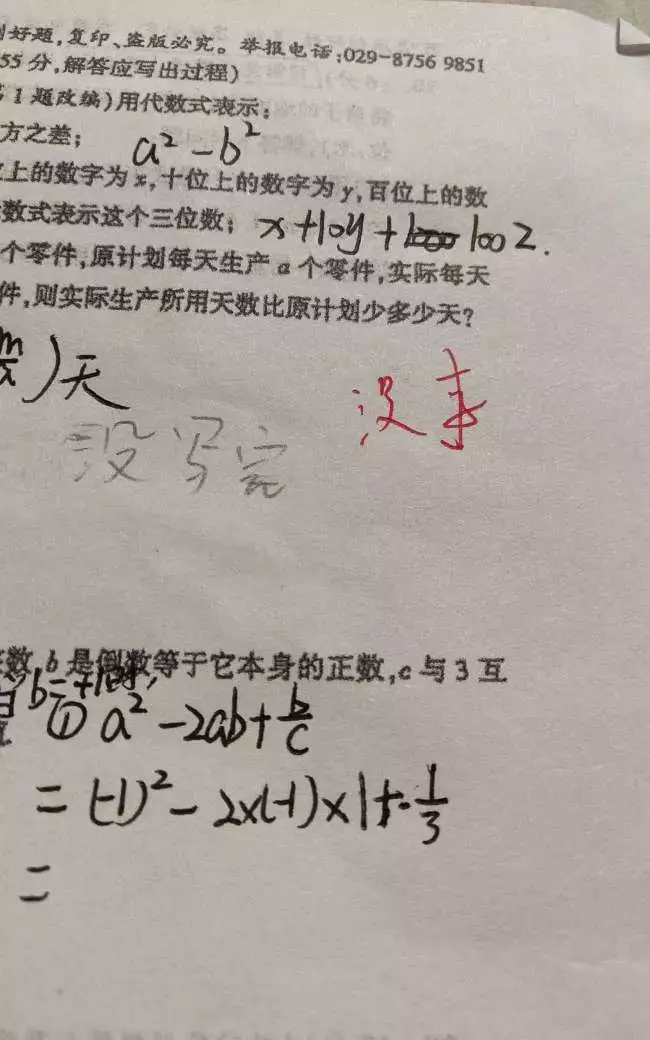 好题,复印、盗版必究。举报电话:029-8756 9851
55 分,解答应写出过程)
1 题改编)用代数式表示:
方之差; a² - b²
上的数字为 x,十位上的数字为 y,百位上的数
数式表示这个三位数; x+10y+100z.
个零件,原计划每天生产 a 个零件,实际每天
件,则实际生产所用天数比原计划少多少天?
)天
没事
没写完
数,b 是倒数等于它本身的正数,c 与 3 互
b=+1时,
① a² - 2ab + b/c
= (-1)² - 2×(-1)×1+-1/3
=